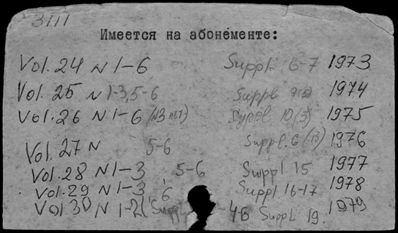 3111
Имеется на абонементе:
Vol. 24 N 1-6 Suppl. 6-7 1973
Vol. 25 N 1-3, 5-6 Suppl. 1974
Vol. 26 N 1-6 (N3 нет) Suppl. 10(3) 1975
Vol. 27 N 5-6 Suppl. 6 1976
Vol. 28 N 1-3 5-6 Suppl 15 1977
Vol. 29 N 1-3 6 Suppl 16-17 1978
Vol 30 N 1-2 Suppl 19. 1979